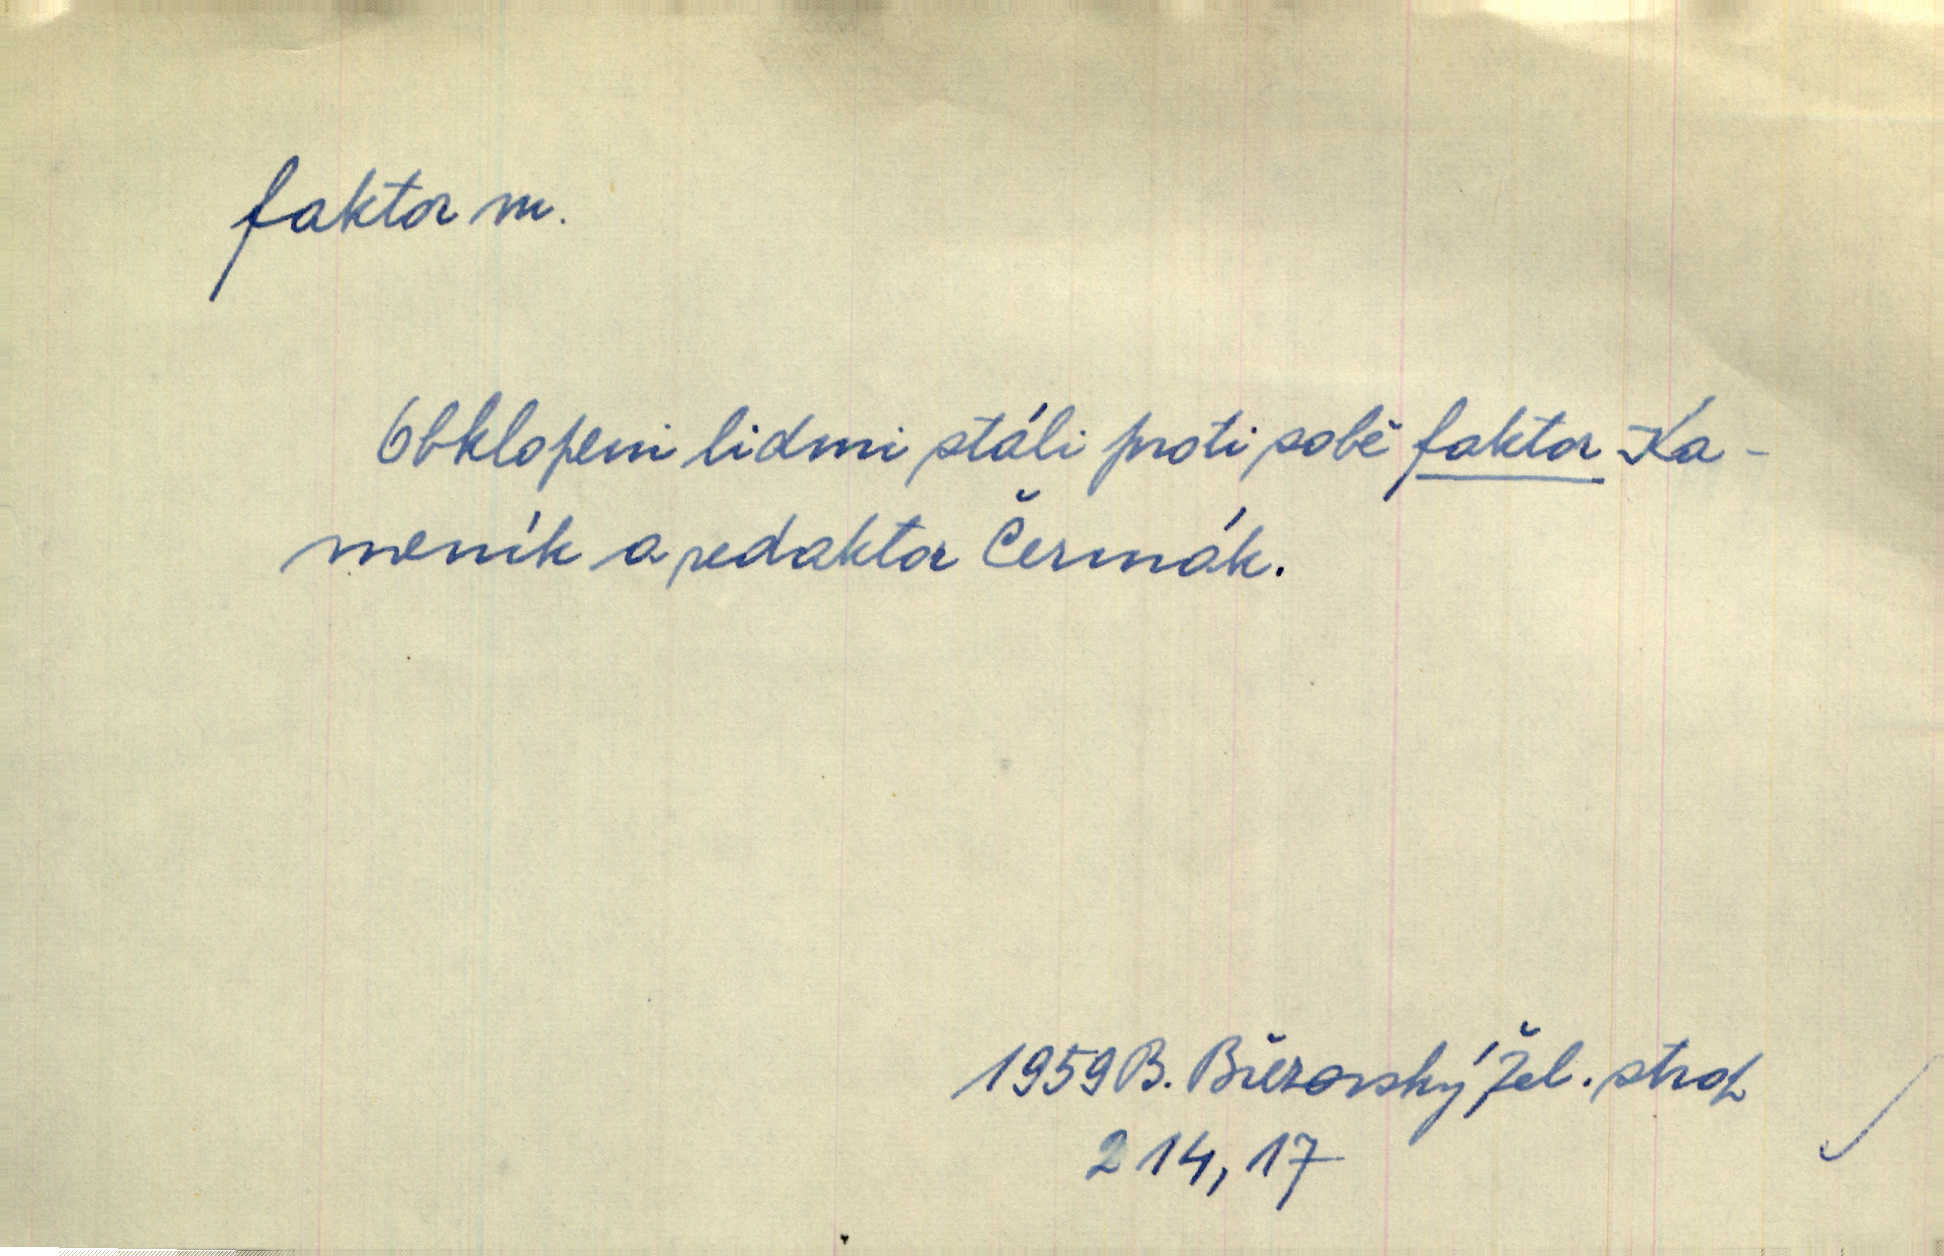 faktor m.
Obklopeni lidmi stáli proti sobě faktor Ka-
meník a redaktor Čermák.
1959 B. Březovský Žel. strop
214, 17